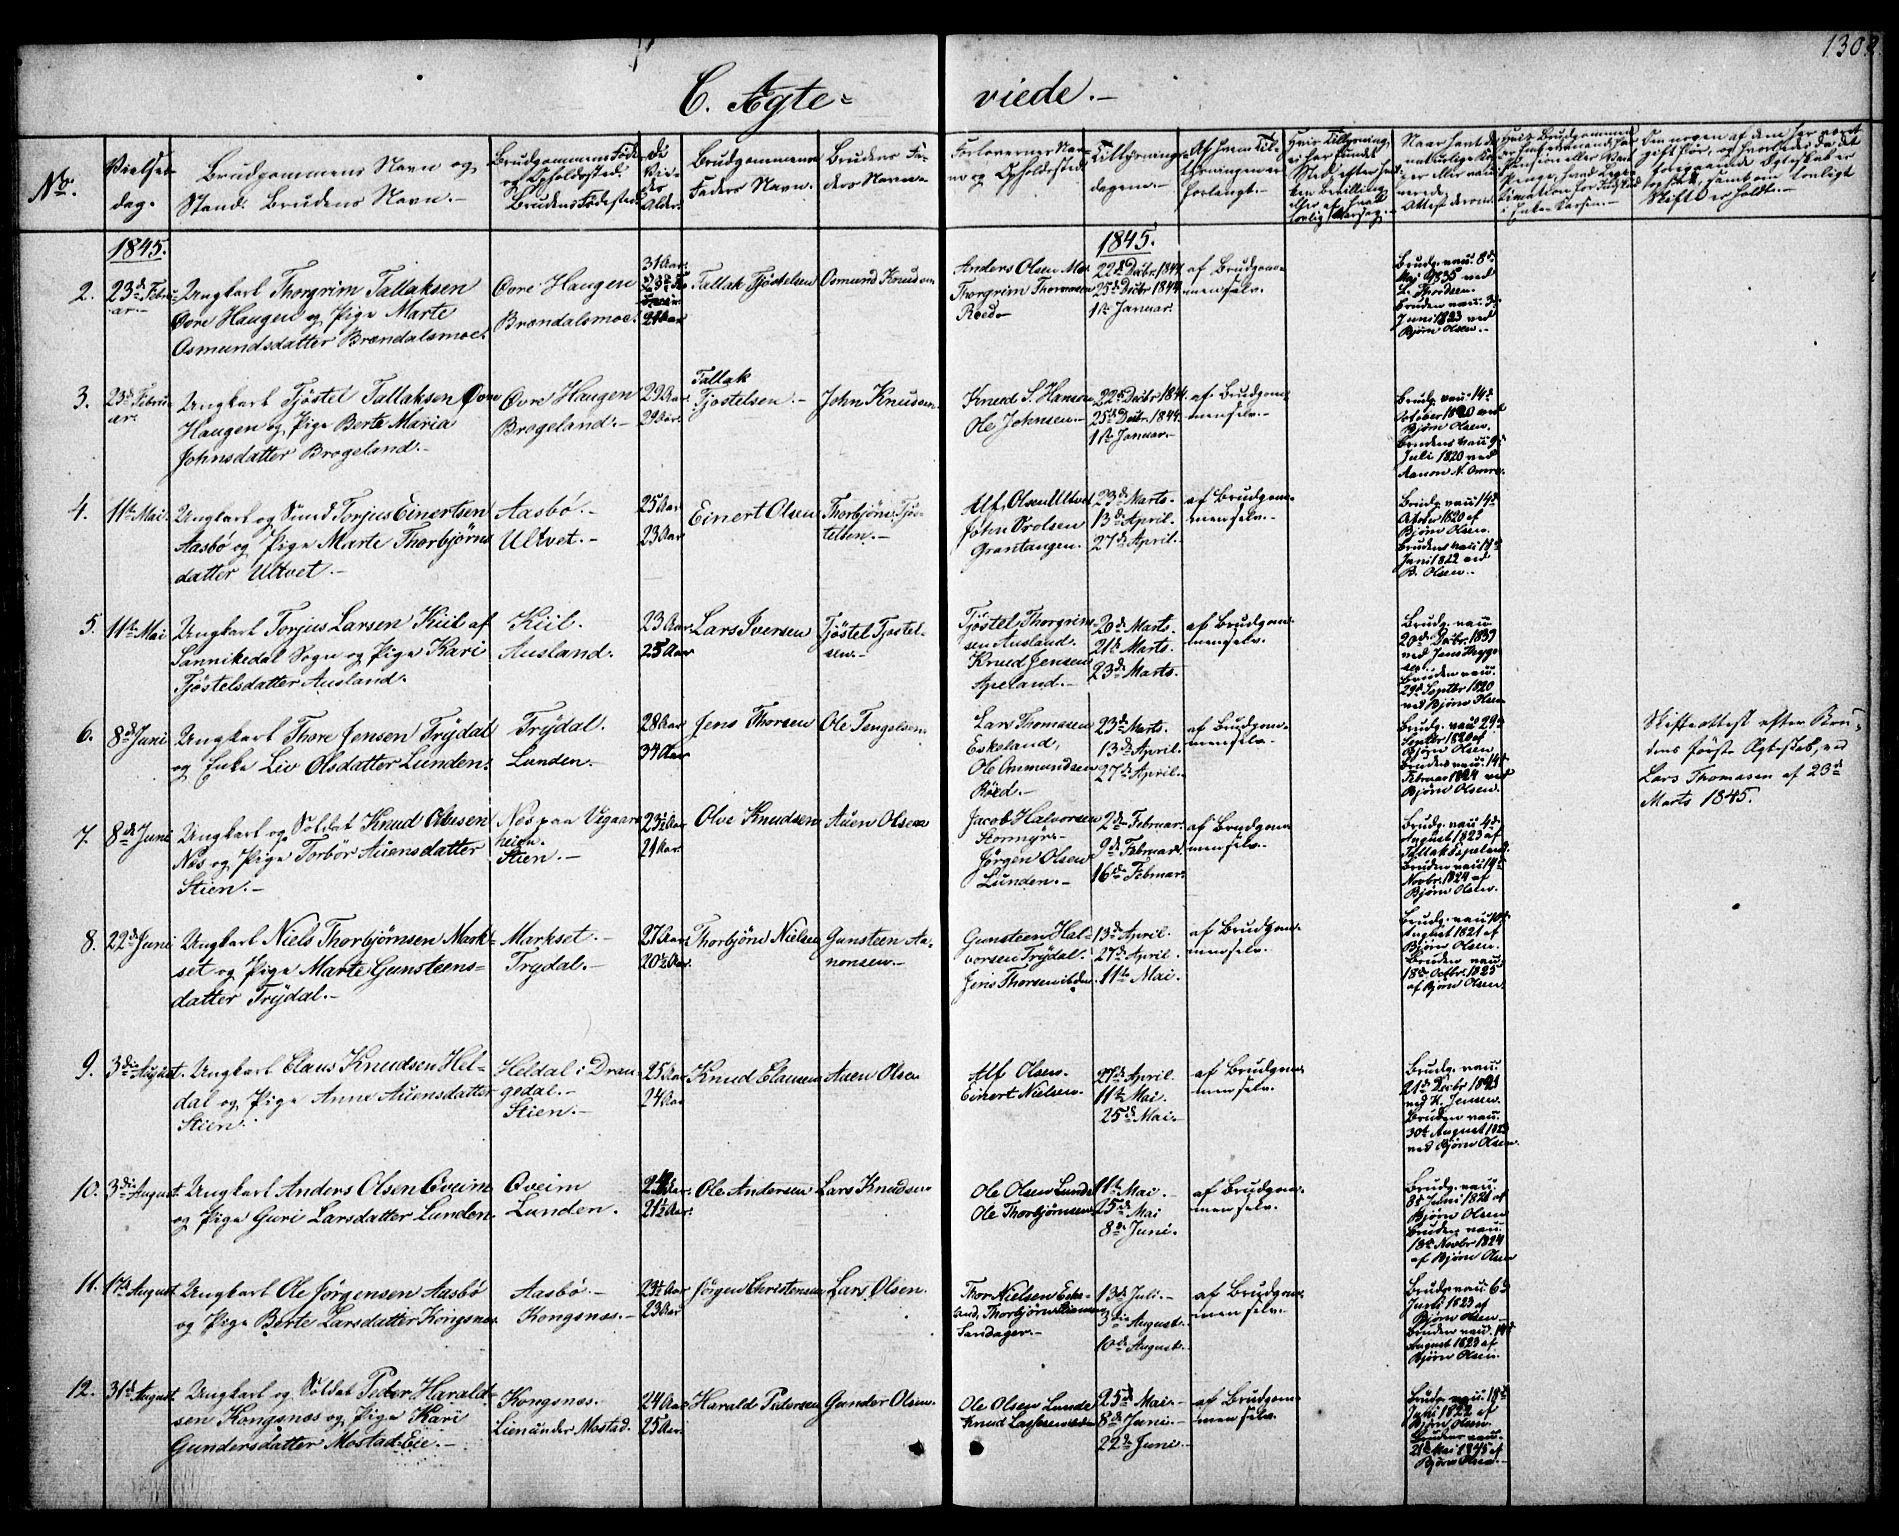 130
C. Ægte-
viede.-
No.
Vielses-
dag.
Brudgommens Navn og
Stand. Brudens Navn.-
Brudgommens Føde
og Opholdssted.
Brudens Fødested
De
Vie-
des
Alder.
Brudgommens
Faders Navn.
Brudens Fa-
ders Navn.
Forlovernes Nav-
ne og Opholdssted
Tillysnings-
dagene.-
Af hvem Til-
lysningen er
forlangt.-
1845.
1845.
2.
23d Febru-
ar.-
Ungkarl Thorgrim Tallaksen
Øvre Haugen og Pige Marte
Osmundsdatter Brændalsmoe.
Øvre Haugen
Brændalsmoe.
31 Aar.
21 Aar
Tallak Tjöstelsen
Osmund Knudsen
Anders Olsen Moe
Thorgrim Thomasen
Röed
22de Decbr. 1844.
25de Decbr 1844
1ste Januar.
af Brudgom-
men selv.
Brudg. vau. 8de
Mai 1835 ved
Bruden vau. 3de
Juni 1823 ved
Bjørn Olsen.-
3.
23d Febru-
ar.
Ungkarl Tjöstel Tallaksen Øvre
Haugen og Pige Berte Maria
Johnsdatter Brøgeland.-
Øvre Haugen
Brøgeland.-
29 Aar.
29 Aar.
Tallak
Tjöstelsen.-
John Knudsen
Knud S. Hansen
Ole Johnsen.-
22de Decbr 1844.
25de Decbr. 1844.
1ste Januar.-
af Brudgom-
men selv.-
Brudg. vau. 14de
October 1820 ved
Bjørn Olsen.
Brudens vau. 9de
Juli 1820 ved
Aanon N. Omre.
4.
11te Mai.
Ungkarl og Smed Torjus Einertsen
Aasbö og Pige Marte Thorbjörns
datter Ultvet.-
Aasbö.-
Ultvet.-
25 Aar
23 Aar
Einert Olsen
Thorbjörn Tjös-
telsen.-
Alf Olsen Ultvet
John Orolsen
Grøntangen.
23de Marts.
13de April.
27de April.
af Brudgom-
men selv.-
Brudg. vau. 14de
October 1820 af
Bjørn Olsen
Brudens vau. 14de
Juni 1822 ved
B. Olsen.-
5.
11te Mai
Ungkarl Torjus Larsen Kiil af
Sannikedal Sogn og Pige Kari
Tjöstelsdatter Ausland.
Kiil.
Ausland.
23 Aar.
25 Aar
Lars Iversen
Tjöstel Tjöstel-
sen.-
Tjöstel Thorgrim-
sen Ausland.
Knud Jensen
Apeland.-
20de Marts.
21de Marts.
23de Marts.
af Brudgom-
men selv.
Brudg. vau.
20de Decbr. 1839
Bruden vau.
29de Septbr 1820
ved Bjørn Olsen
6.
8de Juni
Ungkarl Thore Jensen Trydal
og Enke Liv Olsdatter Lunden.
Trydal.
Lunden.
28 Aar
34 Aar
Jens Thorsen
Ole Tengelsen
Lars Thomasen
Eskeland,
Ole Ommundsen
Röed.-
23de Marts.
13de April.
27de April.
af Brudgom-
men selv.-
Brudg. vau. 29de
Septbr 1820 af
Bjørn Olsen
Brudens vau. 14de
Februar 1824 ved
Bjørn Olsen.
Skifteattest efter Bru-
dens förste Ægteskab, ved
Lars Thomasen af 23de
Marts 1845.
7.
8de Juni
Ungkarl og Soldat Knud Olvesen
Næs og Pige Torbör Auensdatter
Stien.-
Næs paa Vegaars
heien.
Stien.-
23½ Aar
21 Aar.
Olve Knudsen
Auen Olsen
Jacob Halvorsen
Stormyr-
Jörgen Olsen
Lunden.-
2de Februar.
9de Februar.
16de Februar.
af Brudgom-
men selv.
Brudg. vau. 4de
August 1823 af
Tallak Espeland
Bruden vau. 14de
Novbr. 1824 af
Bjørn Olsen.
8.
22de Juni
Ungkarl Niels Thorbjörnsen Mark-
set og Pige Marte Gunsteens-
datter Trydal.-
Markset.-
Trydal.-
27 Aar.
20½ Aar.
Thorbjörn Nielsen
Gunsteen Aa-
nonsen.-
Gunsteen Hal-
vorsen Trydal.
Jens Thorsen ibdm.
13de April.
27de April.
11te Mai.
af Brudgom-
men selv.
Brudg. vau. 10de
August 1821 af
Bjørn Olsen.
Bruden vau.
18de Octbr. 1825
af Bjørn Olsen
9.
3die August.
Ungkarl Claus Knudsen Hel-
dal og Pige Anne Auensdatter
Stien.
Heldal i Dran-
gedal.-
Stien.-
25 Aar
24 Aar
Knud Clausen
Auen Olsen
Alf Olsen.
Einert Nielsen.
27de April.
11te Mai.
25de Mai.-
af Brudgom-
men selv.
Brudg. vau.
21de Decbr 1823
ved K. Jensen.
Bruden vau.
30te August 1823
ved Bjørn Olsen.
10.
3die August.
Ungkarl Anders Olsen Qveim
og Pige Guri Larsdatter Lunden.
Qveim
Lunden.
21½ Aar.
Ole Andersen
Lars Knudsen
Ole Olsen Lunde
Ole Thorbjörnsen
11te Mai.
25de Mai
8de Juni.
af Brudgom-
men selv.
Brudg. vau.
8de Juni 1821 af
Bjørn Olsen
Bruden vau.
13de Novbr 1824
af Bjørn Olsen
11.
17de August.
Ungkarl Ole Jörgensen Aasbö
og Pige Berte Larsdatter Kongsnæs.
Aasbö.-
Kongsnæs.-
23½ Aar
23 Aar
Jörgen Christensen
Lars Olsen.
Thor Nielsen Eske-
land, Thorbjörn
Sandager.-
13de Juli.-
3die August.
10de August.
af Brudgom-
men selv.
Brudg. vau. 6de
Juli 1823 af
Bjørn Olsen
Bruden vau. 14de
August 1823 af
Bjørn Olsen.
12.
31te August.
Ungkarl og Soldat Peder Harald-
sen Kongsnæs og Pige Kari
Gundersdatter Mostad Eie.-
Kongsnæs.-
Lien under Mostad.
24 Aar
25 Aar.
Harald Pedersen
Gunder Olsen.
Ole Olsen Lunde
Knud
25de Mai.-
8de Juni.-
22de Juni.-
af Brudgom-
men selv.
Brudg. vau. 18de
Juli 1822 af
Bjørn Olsen.
Bruden vau.
21de Mai 1845 af
Bjørn Olsen.-